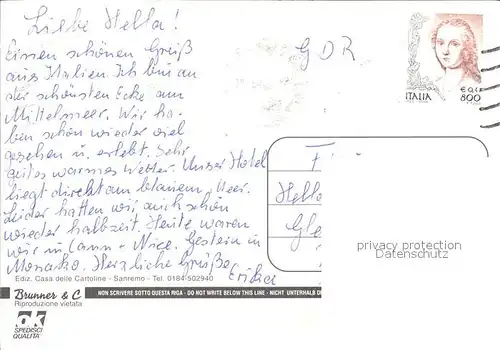 Liebe Hella!
Einen schönen Gruß
aus Italien. Ich bin an
der schönsten Ecke am
Mittelmeer. Wir ha-
ben schon wieder viel
gesehen u. erlebt. Sehr
gutes warmes Wetter. Unser Hotel
liegt direkt am blauem Meer.
Leider hatten wir auch schon
wieder halbzeit. Heute waren
wir in Cann - Nice. Gestern in
Monako. Herzliche Grüße
Erika
Ediz. Casa delle Cartoline - Sanremo - Tel. 0184-502940
Brunner & C
Riproduzione vietata
NON SCRIVERE SOTTO QUESTA RIGA - DO NOT WRITE BELOW THIS LINE - NICHT UNTERHALB D
OK
SPEDISCI
QUALITÀ
GDR
ITALIA
800
F
Hella
Gl
privacy protection
Datenschutz